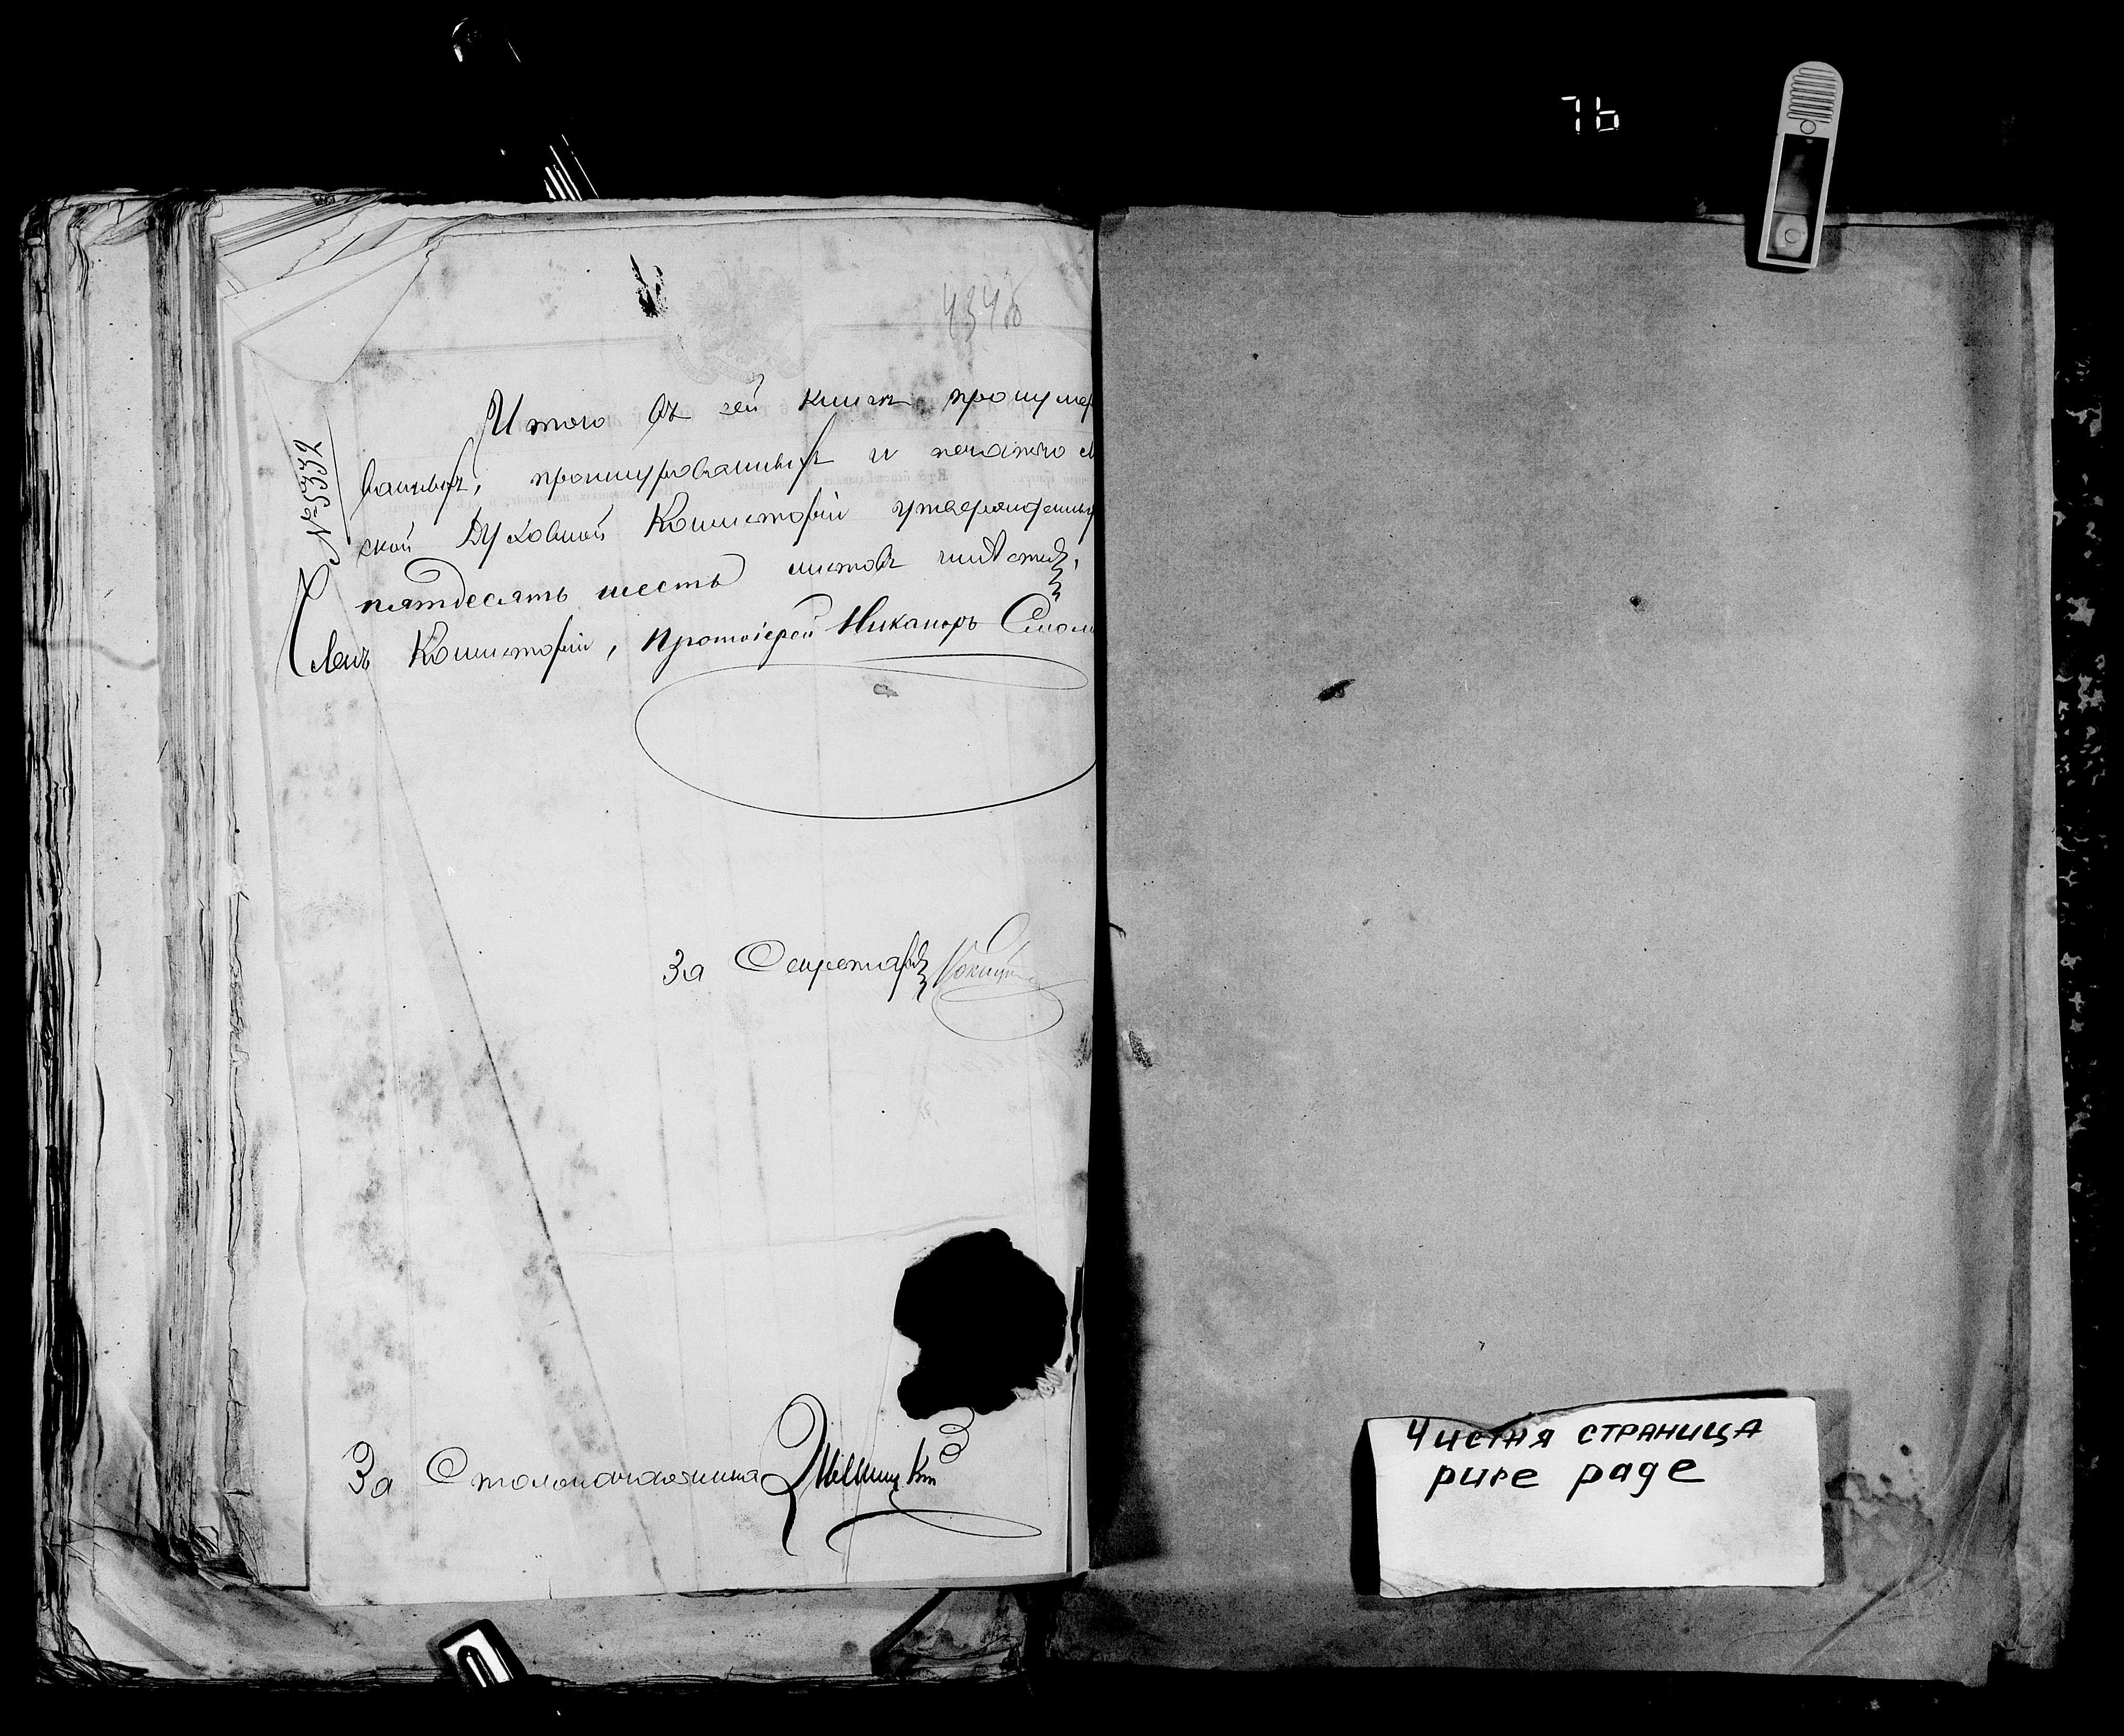 76
434об
№ 5332
Итого въ сей книгѣ пронумеро
ванныхъ, прошнурованныхъ и печатью
ской Духовной Консисторіи утвержденныхъ
пятдесятъ шесть листовъ
Членъ Консисторіи, Протоіерей Никаноръ Смол
За Секретаря
За Столоначальника
Чистая страница
pure page